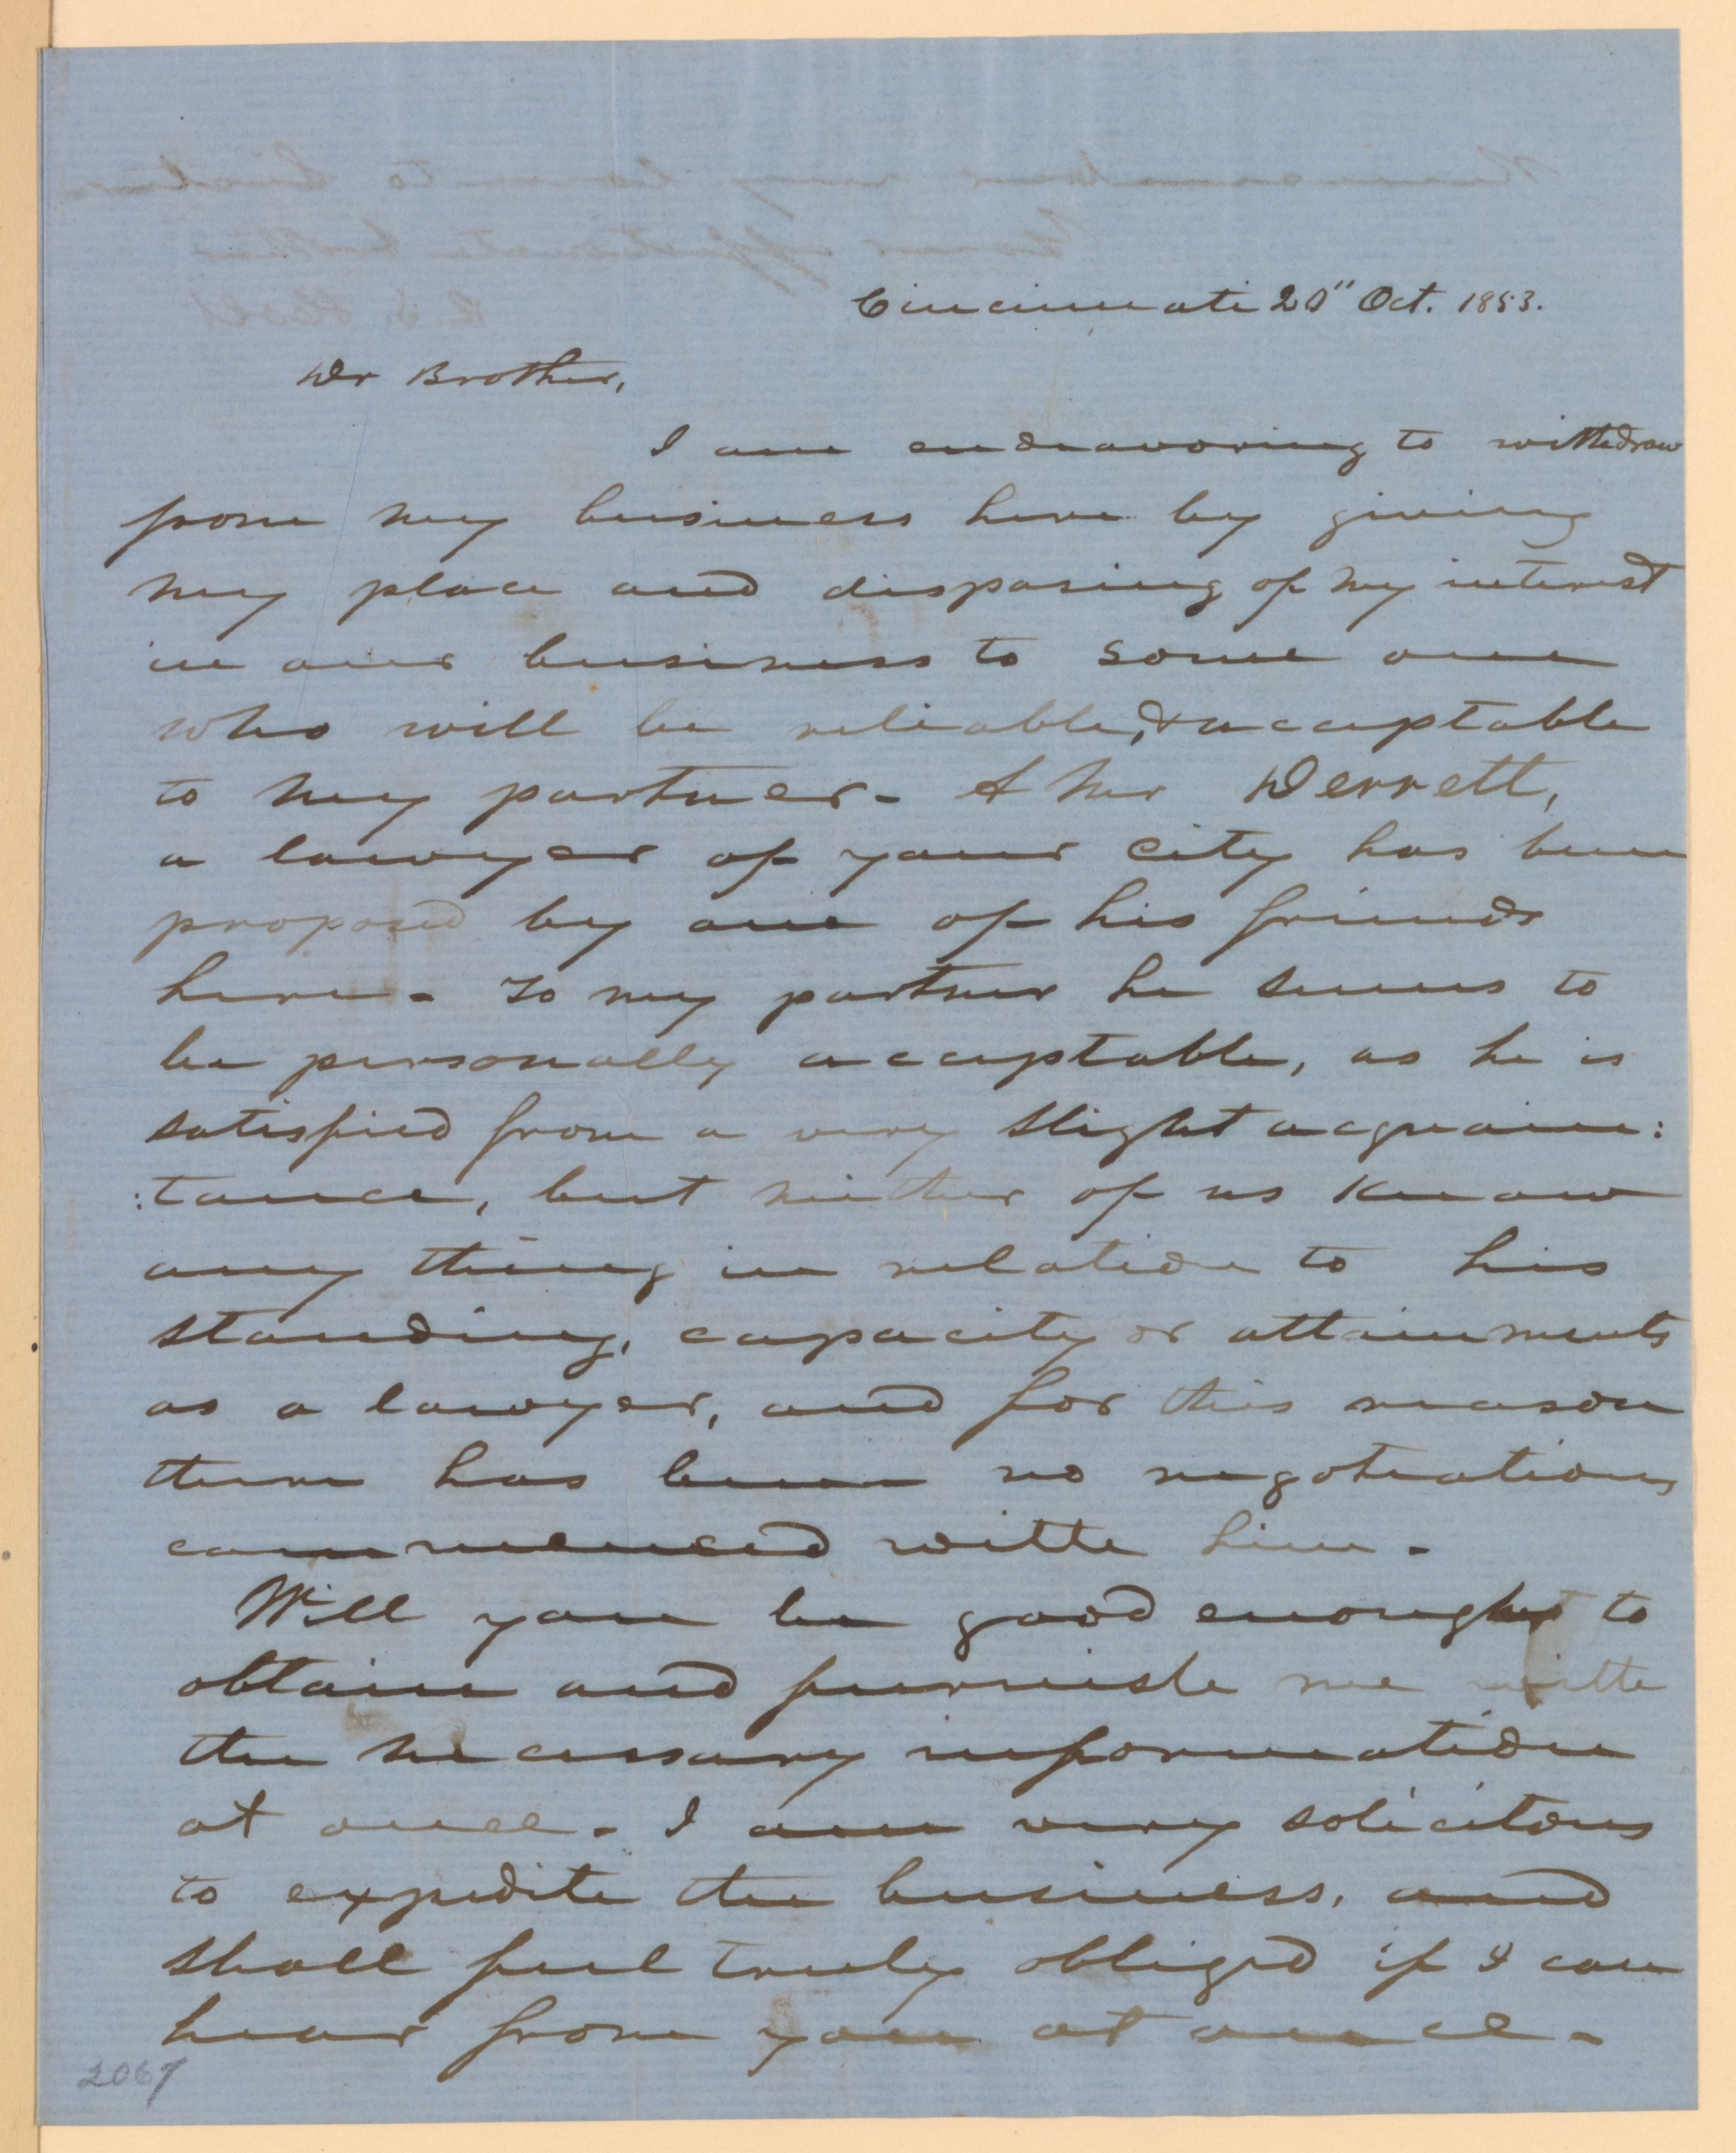 Cincinnati 20" Oct. 1853.
Dr Brother,
I am endeavoring to withdraw
from my business here by giving
my place and disposing of my interest
in our business to some one
who will be reliable, & acceptable
to my partner. A Mr Derrett,
a lawyer of your city has been
proposed by one of his friends
here. To my partner he seems to
be personally acceptable, as he is
satisfied from a very slight acquain:
:tance, but neither of us know
any thing in relation to his
standing, capacity or attainments
as a lawyer, and for this reason
there has been no negotiations
commenced with him.
Will you be good enough to
obtain and furnish me with
the necessary information
at once. I am very solicitous
to expedite the business, and
shall feel truly obliged if I can
hear from you at once.
2067